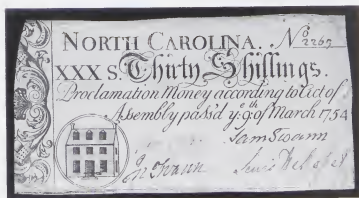 NORTH CAROLINA. No 2267
XXX S. Thirty Shillings.
Proclamation Money according to Act of
Assembly pass'd ye. 9th of March 1754
Sam Swann
Jno Swann Lewis